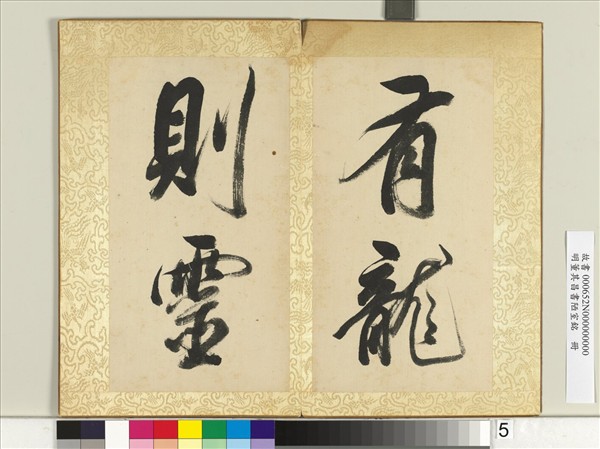 有龍
則靈
故書000652N000000000
明董其昌書陋室銘 冊
5